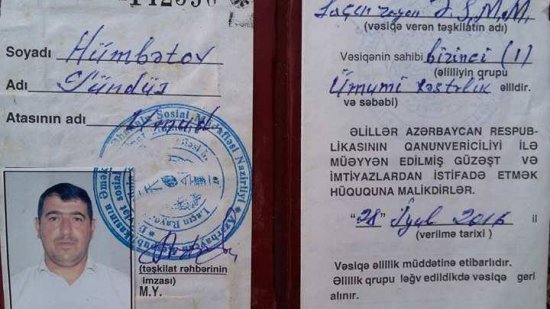 Soyadı Hümbətov
Adı Gündüz
Atasının adı
(təşkilat rəhbərinin
imzası)
M.Y.
Laçın rayon Ə.S.M.M.
(vəsiqə verən təşkilatın adı)
Vəsiqənin sahibi birinci (I)
(əlilliyin qrupu
Ümumi xəstəlik əlildir.
və səbəbi)
ƏLİLLƏR AZƏRBAYCAN RESPUB-
LİKASININ QANUNVERİCİLİYİ İLƏ
MÜƏYYƏN EDİLMİŞ GÜZƏŞT VƏ
İMTİYAZLARDAN İSTİFADƏ ETMƏK
HÜQUQUNA MALİKDİRLƏR.
"28" İyul 2016 il
(verilmə tarixi)
Vəsiqə əlillik müddətinə etibarlıdır.
Əlillik qrupu ləğv edildikdə vəsiqə geri
alınır.